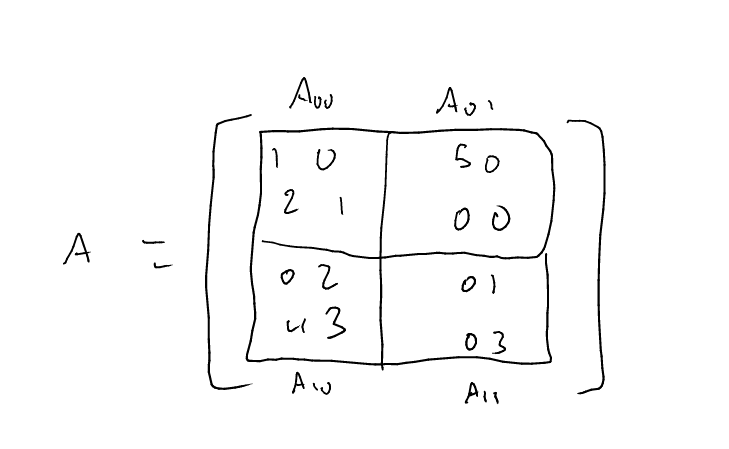 A00 A01
1 0 5 0
2 1 0 0
A =
0 2 0 1
4 3 0 3
A10 A11